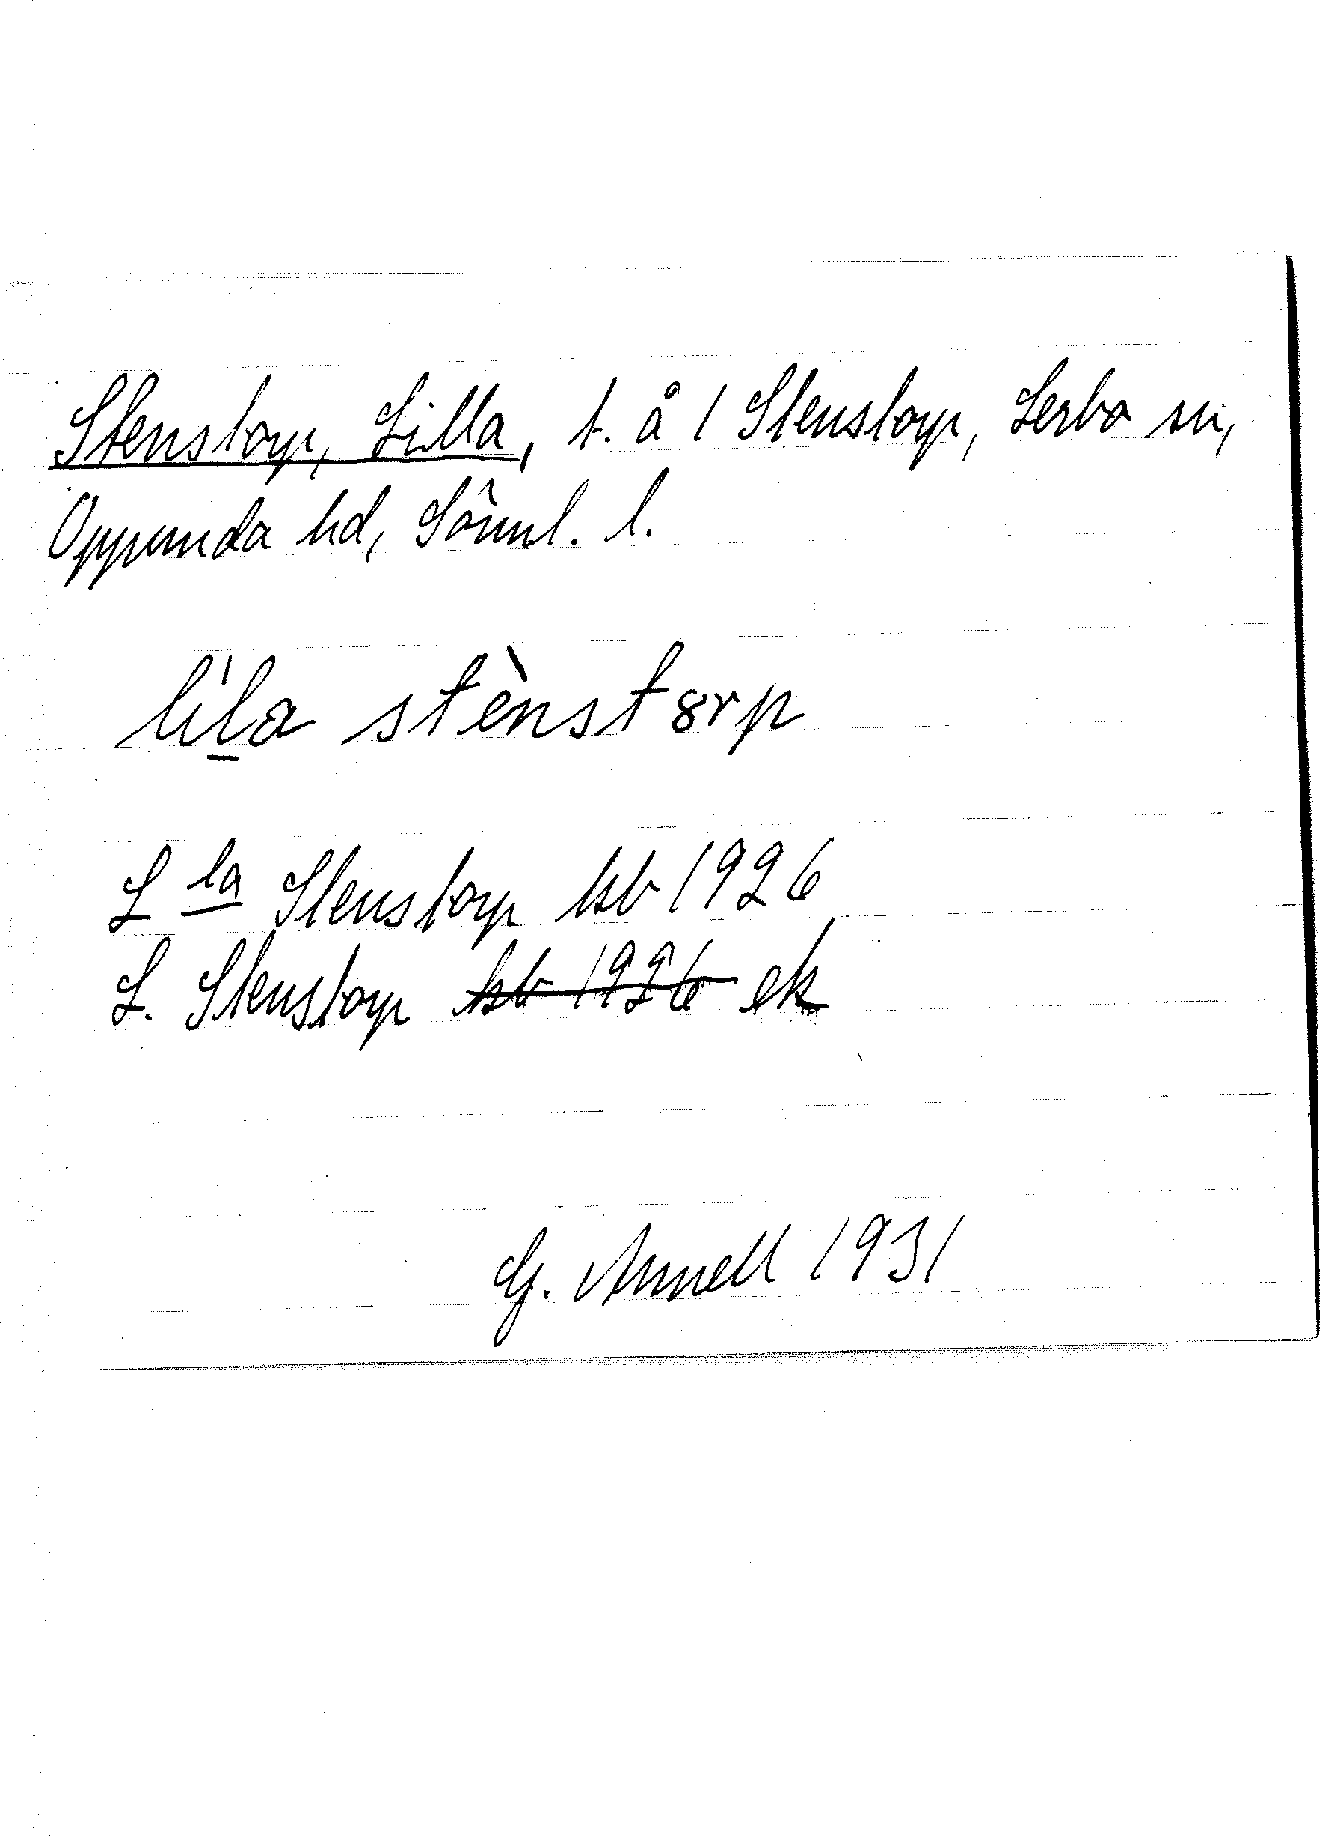 Stenstorp, Lilla, t. å 1 Stenstorp, Lerbo sn,
Oppunda hd, Söml. l.
lila stènstorp
L la Stenstorp hsb 1926
L. Stenstorp hsb 1926 ek
G. Annell 1931